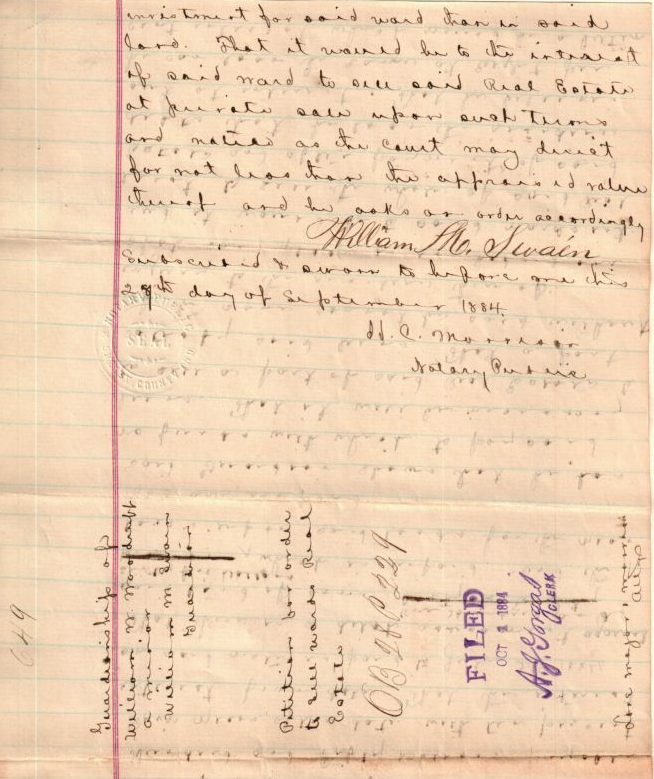 investment for said ward than in said
land. That it would be to the interest
of said ward to sell said Real Estate
at private sale upon such terms
and notice as the court may direct
for not less than the appraised value
thereof and he asks an order accordingly
William M. Swain
Subscribed & sworn to before me this
29th day of September 1884.
H. C. Morrison
Notary Public
SEAL
Guardianship of
William W. Woodruff
a minor
William M Swain
Guardian
Petition for order
to sell wards Real
Estate
FILED
OCT 1 1884
CLERK
649